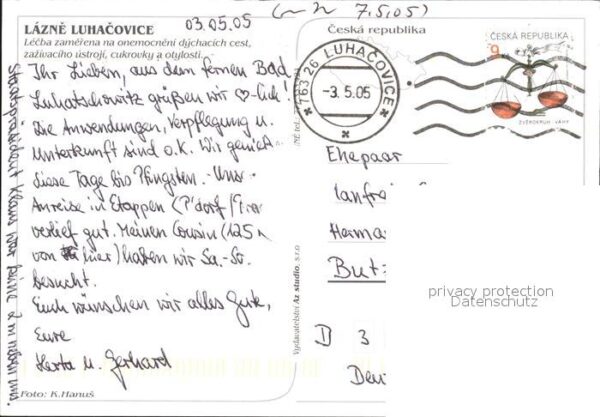 03.05.05
7.5.05)
LÁZNĚ LUHAČOVICE
Léčba zaměřena na onemocnění dýchacích cest,
zažívacího ústrojí, cukrovky a otylosti.
Ihr Lieben, aus dem fernen Bad
Luhatschowitz grüßen wir ♡-lich!
Die Anwendungen, Verpflegung u.
Unterkunft sind o.K. Wir genieß.
diese Tage bis Pfingsten. Unsr
Anreise in Etappen (P'dorf/
verlief gut. Meinen Cousin (125
von hier) haben wir Sa.-So.
besucht.
Euch wünschen wir alles Gute,
Eure
Herta u. Gerhard
Staatspräsident Klaus war
Foto: K.Hanuš
Vydavatelství Az studio, s.r.o
Česká republika
763 26 LUHAČOVICE
-3.5.05
9
ČESKÁ REPUBLIKA
ZVĚROKRUH - VÁHY
Ehepaar
Manfre
Herma
Butz
D 3
Deu
privacy protection
Datenschutz